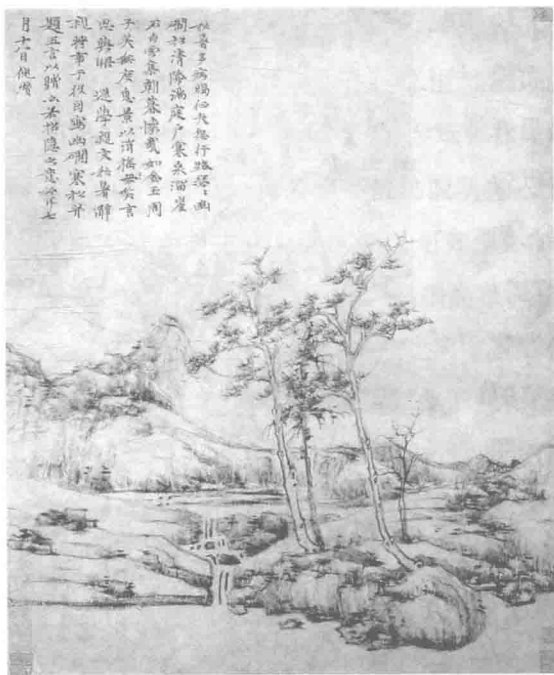 秋暑多病暍征夫怨行路瑟々幽
澗松清陰滿庭户寒泉溜崖
石白雲集朝暮懷哉如金玉周
子美無度息景以消搖笑言
思與晤 遜學親友秋暑辭
親將事于役因寫幽澗寒松并
題五言以贈亦若招隱之意云耳七
月十八日倪瓚